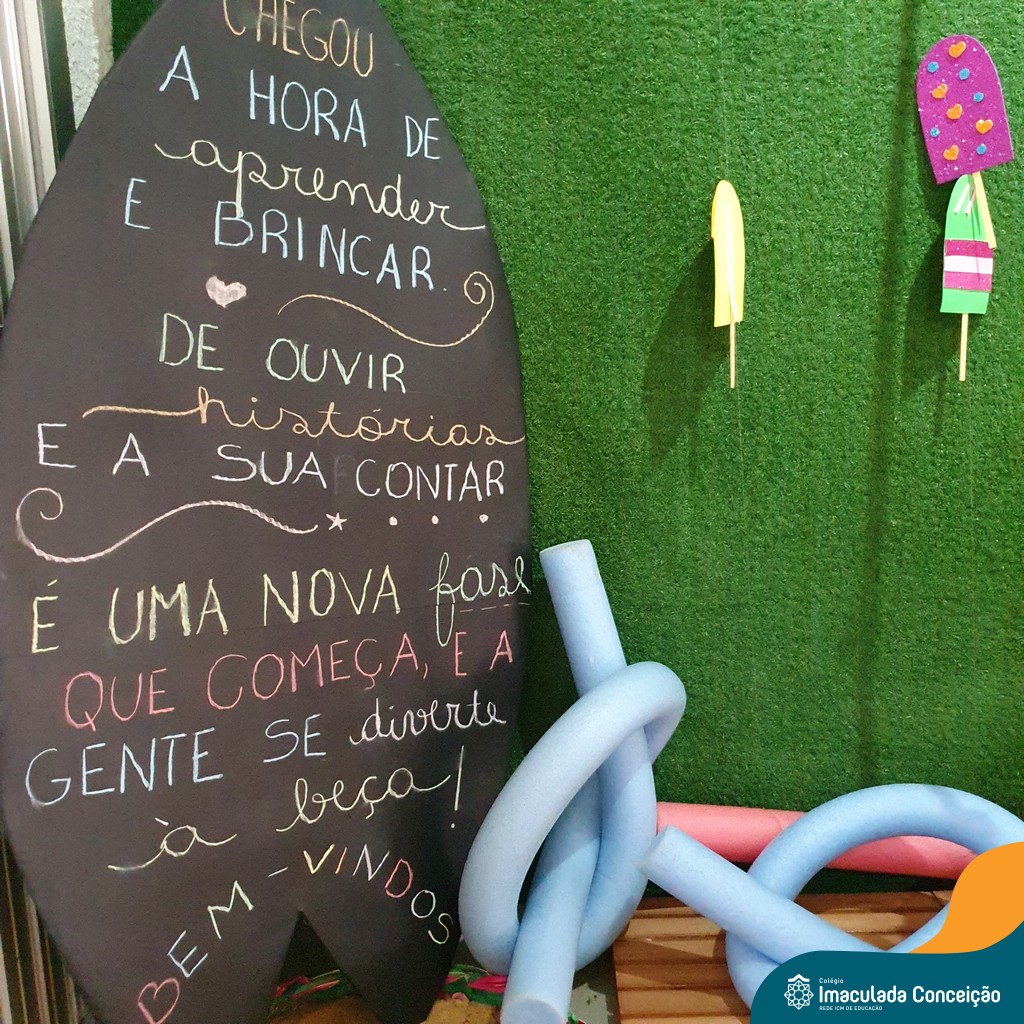 CHEGOU
A HORA DE
aprender
E BRINCAR.
DE OUVIR
histórias
E A SUA CONTAR
É UMA NOVA fase
QUE COMEÇA, E A
GENTE SE diverte
à beça!
BEM-VINDOS
Colégio
Imaculada Conceição
REDE ICM DE EDUCAÇÃO